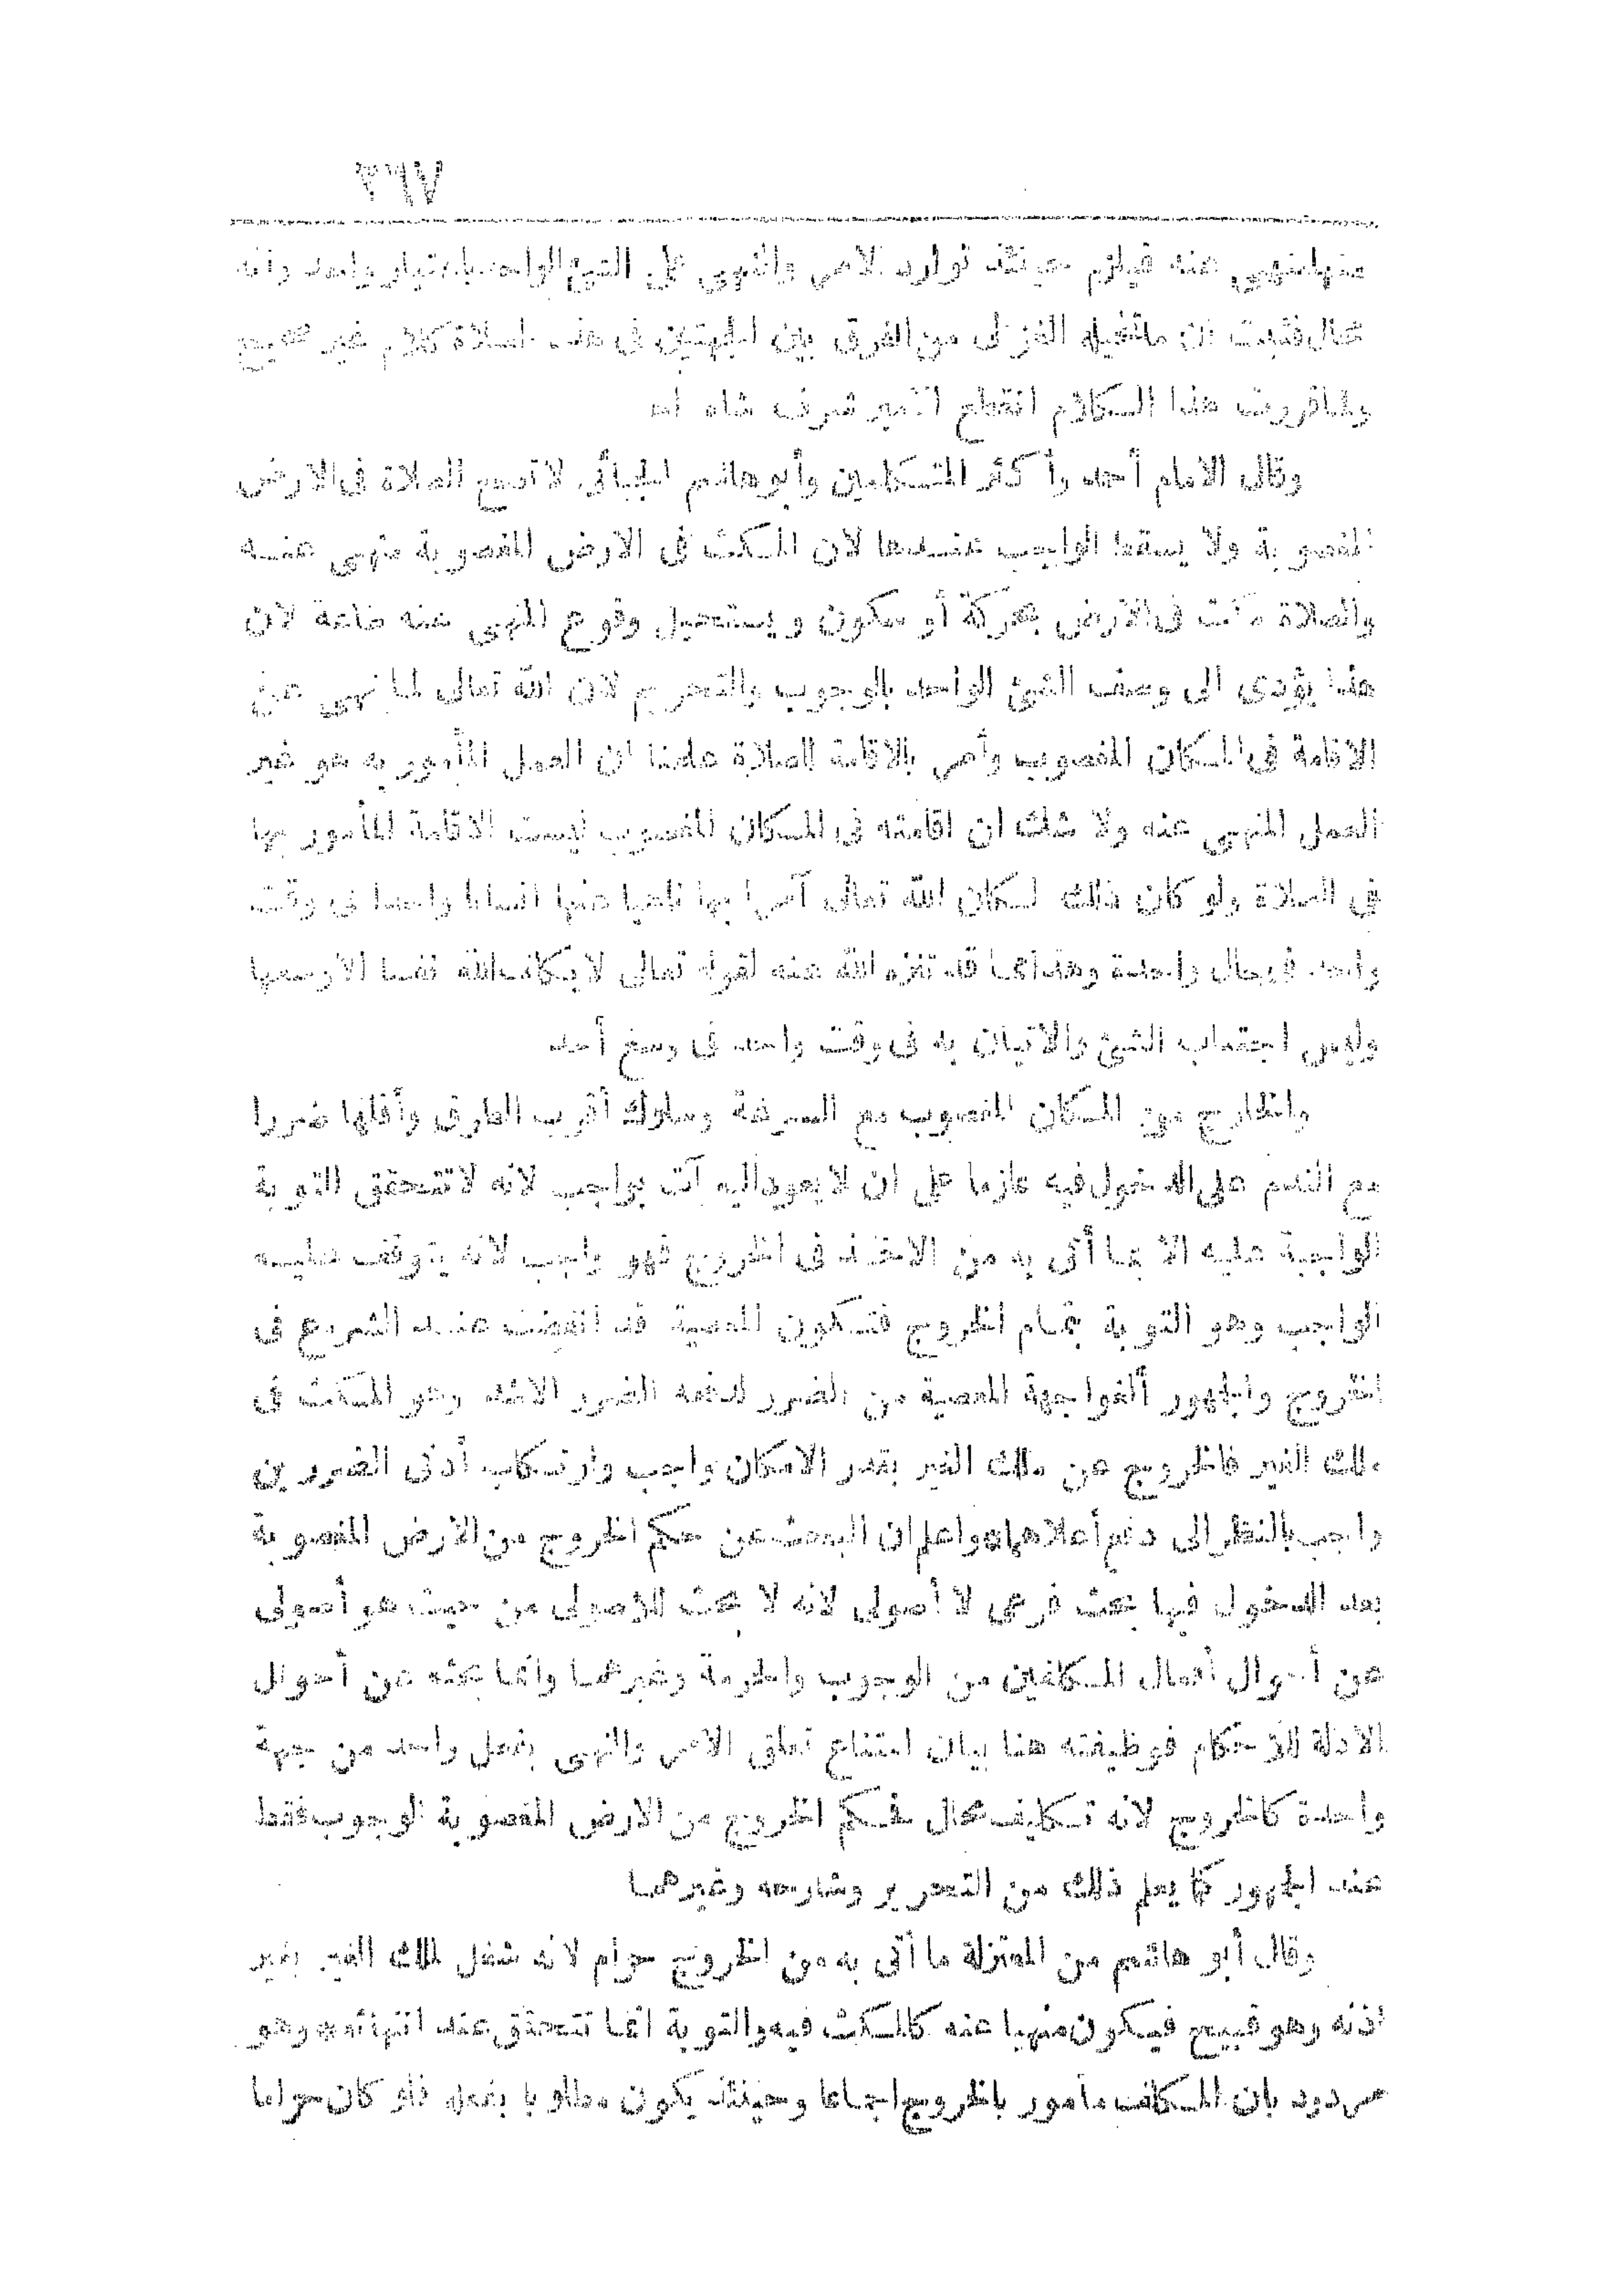 ٣٦٧
منها منهي عنه فيلزم حينئذ توارد الامر والنهى على الشئ الواحد باعتبار واحد وانه
محال فثبت ان ما تخيله الغزالى من الفرق بين الجهتين فى هذه الصلاة كلام غير صحيح
ولما قررت هذا الكلام انقطع الامير شرف شاه اه
وقال الامام أحمد وأكثر المتكلمين وأبو هاشم الجبائى لا تصح الصلاة فى الارض
المغصوبة ولا يسقط الواجب عندها لان المكث فى الارض المغصوبة منهى عنه
والصلاة مكث فى الارض بحركة أو سكون ويستحيل وقوع المنهى عنه طاعة لان
هذا يؤدى الى وصف الشئ الواحد بالوجوب والتحريم لان الله تعالى لما نهى عن
الاقامة فى المكان المغصوب وأمر بالاقامة للصلاة علمنا ان العمل المأمور به هو غير
العمل المنهى عنه ولا شك ان اقامته فى المكان المغصوب ليست الاقامة المأمور بها
فى الصلاة ولو كان ذلك لكان الله تعالى آمرا بها ناهيا عنها انسانا واحدا فى وقت
واحد فى حال واحدة وهذا مما قد تنزه الله عنه لقوله تعالى لا يكلف الله نفسا الا وسعها
وليس اجتناب الشئ والاتيان به فى وقت واحد فى وسع أحد
والخارج من المكان المغصوب مع السرعة وسلوك أقرب الطرق وأقلها ضررا
مع الندم على الدخول فيه عازما على ان لا يعود اليه آت بواجب لانه لا تتحقق التوبة
الواجبة عليه الا بما أتى به من الاخذ فى الخروج فهو واجب لانه يتوقف عليه
الواجب وهو التوبة بتمام الخروج فتكون المعصية قد انقضت عند الشروع فى
الخروج والجمهور ألغوا جهة المعصية من الضرر لدفعه الضرر الاشد وهو المكث فى
ملك الغير فالخروج عن ملك الغير بقدر الامكان واجب وارتكاب أدنى الضررين
واجب بالنظر الى دفع أعلاهما واعلم ان البحث عن حكم الخروج من الارض المغصوبة
بعد الدخول فيها بحث فرعى لا أصولى لانه لا بحث للاصولى من حيث هو أصولى
عن أحوال أفعال المكلفين من الوجوب والحرمة وغيرهما وانما بحثه عن أحوال
الادلة للاحكام فوظيفته هنا بيان امتناع تعلق الامر والنهى بفعل واحد من جهة
واحدة كالخروج لانه تكليف محال فحكم الخروج من الارض المغصوبة الوجوب فقط
عند الجمهور كما يعلم ذلك من التحرير وشارحه وغيرهما
وقال أبو هاشم من المعتزلة ما أتى به من الخروج حرام لانه شغل لملك الغير بغير
اذنه وهو قبيح فيكون منهيا عنه كالمكث فيه والتوبة انما تتحقق عند انتهائه وهو
مردود بان المكلف مأمور بالخروج اجماعا وحينئذ يكون مطلوبا بفعله فلو كان حراما